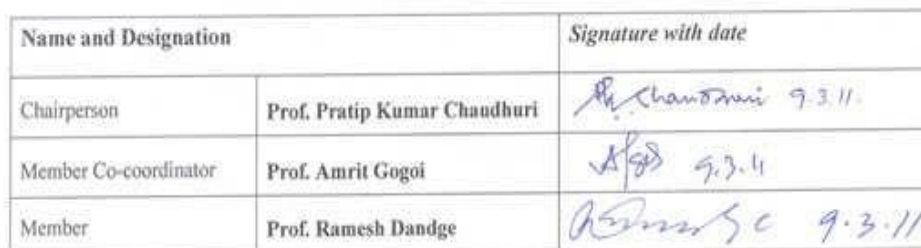 Name and Designation Signature with date
Chairperson Prof. Pratip Kumar Chaudhuri Chaudhuri 9.3.11.
Member Co-coordinator Prof. Amrit Gogoi 9.3.11
Member Prof. Ramesh Dandge 9.3.11